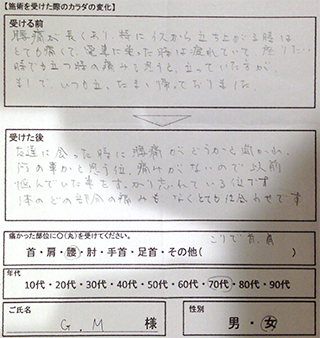 【施術を受けた際のカラダの変化】
受ける前
腰痛が長くあり、特にイスから立ち上がる時は
とても痛くて、電車に乗った時は疲れていて、座りたい
時でも立つ時の痛みを思うと、立っていた方が
まして、いつも立ったまま帰っておりました
受けた後
友達に会った時に腰痛がどうかと聞かれ、
何の事かと思う位、痛みがないので以前
悩んでいた事をすっかり忘れている位です
体のどの部分の痛みもなくとても幸せです
痛かった部位に〇(丸)を受けてください。 こりで首、肩
首・肩・腰・肘・手首・足首・その他( )
年代
10代・20代・30代・40代・50代・60代・70代・80代・90代
ご氏名 性別
G.M 様 男・女